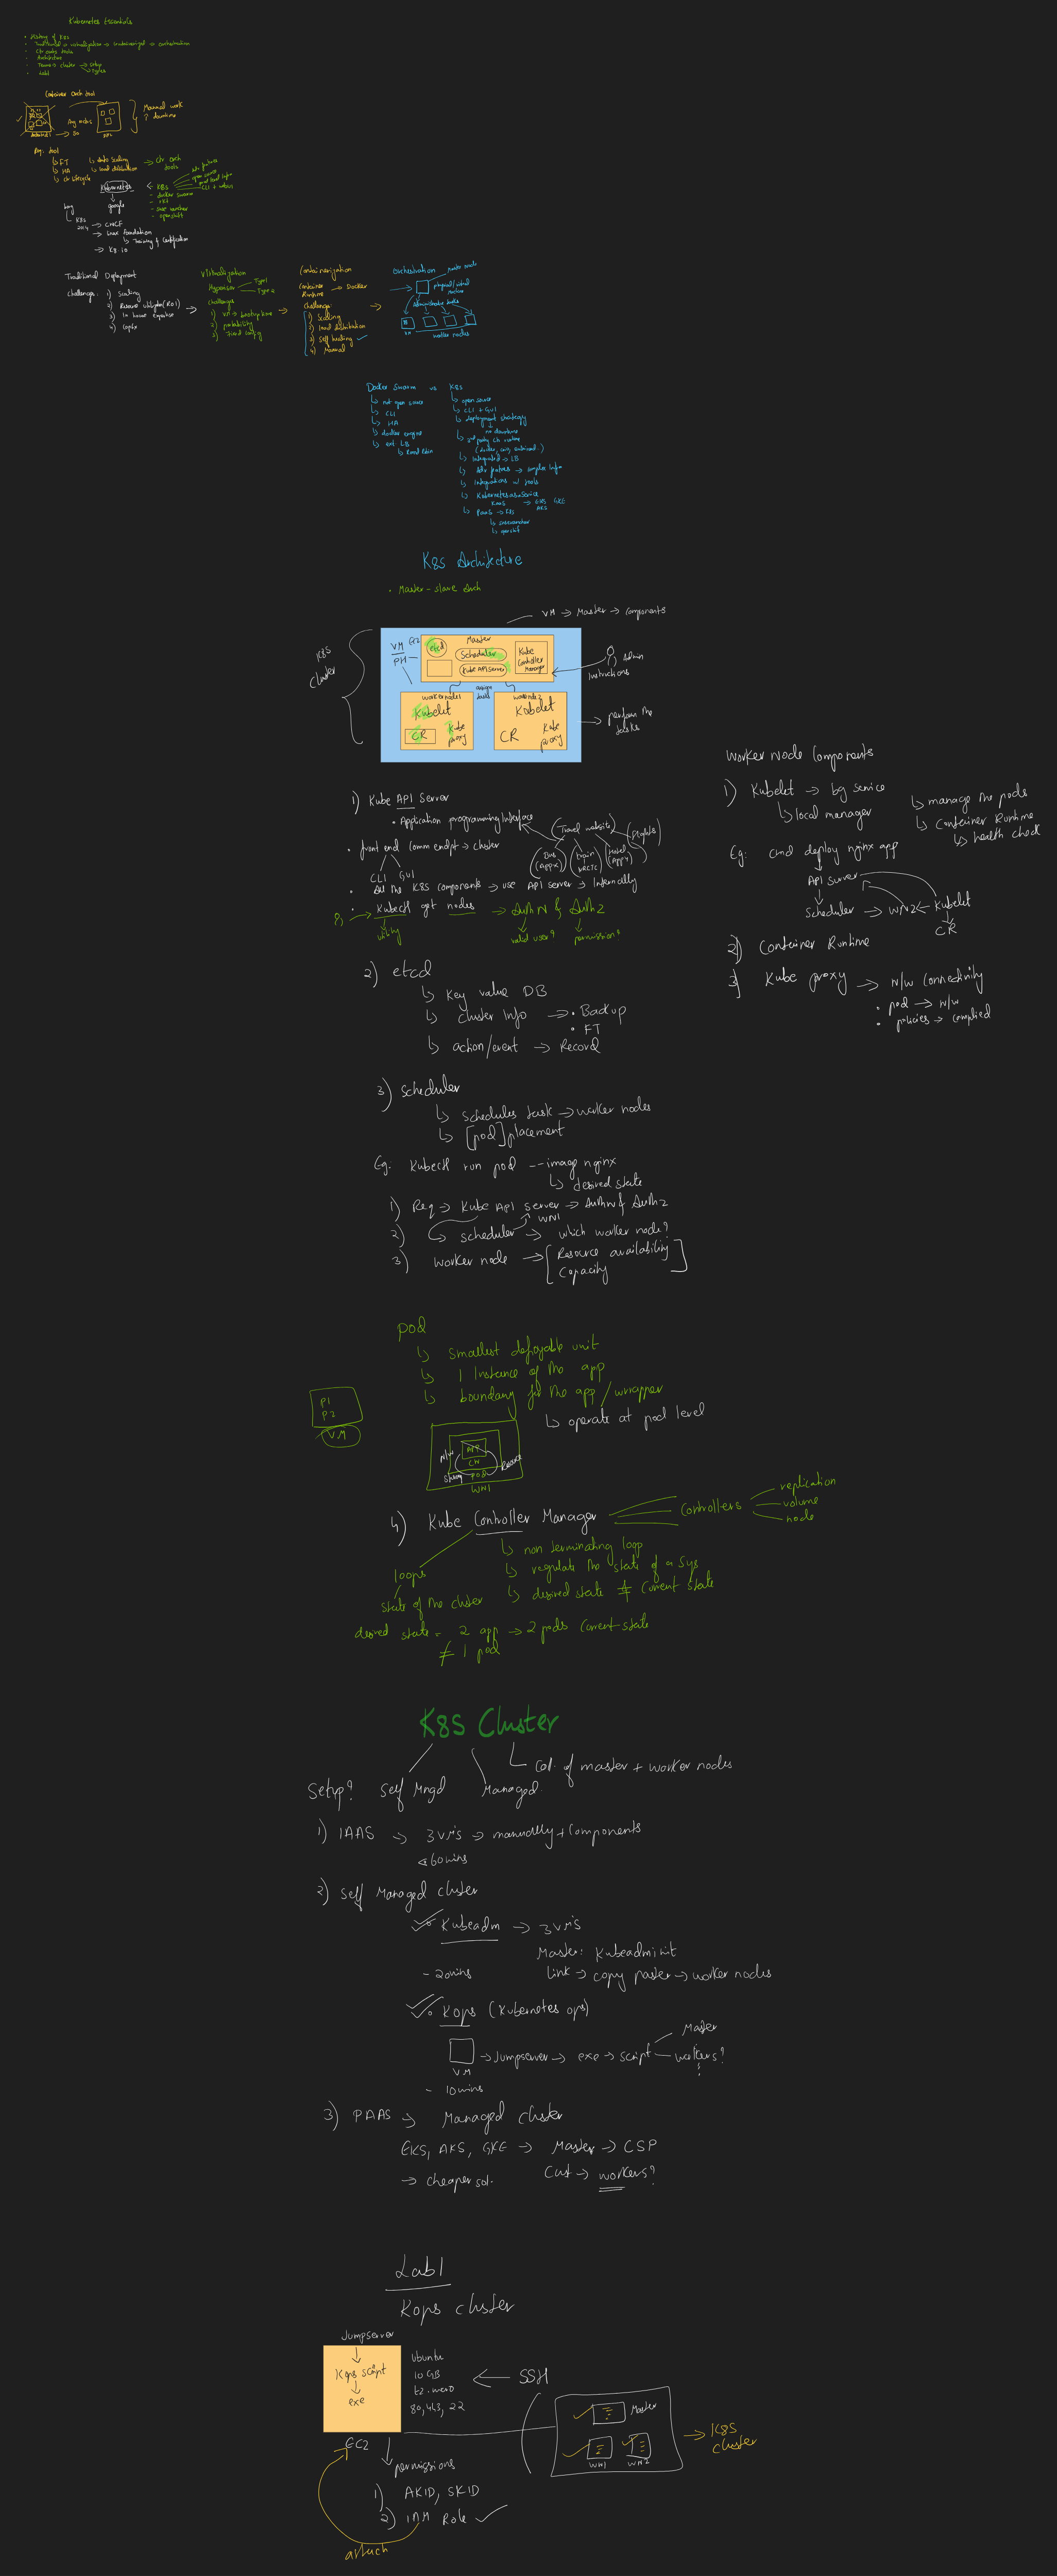 Kubernetes Essentials
• History of K8s
• Traditional → virtualization → containerized → orchestration
• Ctr orch tools
• Architecture
• Types → cluster → Setup
→ Types
• Lab1
Container orch tool
Manual work
? downtime
→ 80
Req: tool
↳ FT
↳ HA
↳ ctr lifecycle
↳ auto scaling
↳ load distribution
→ Ctr orch tools
Kubernetes
↓
google
- K8S
- docker swarm
- openshift
adv. features
open source
CLI + webUI
borg
↳ K8S
2014 → CNCF
→ Linux foundation
↳ Training & Certification
→ K8.io
Traditional Deployment
Challenges: 1) Scaling
2) Resource Utilization (ROI)
3) In house expertise
4) CapEx
Virtualization
Hypervisor
Type 1
Type 2
Challenges
1) VM → bootup time
2) portability
3) Fixed config
Containerization
Container Runtime → Docker
Challenge:
1) Scaling
2) load distribution
3) Self healing
4) Manual
Orchestration
master node
physical/virtual machine
administrative tasks
worker nodes
Docker Swarm vs K8S
↳ not open source
↳ CLI
↳ HA
↳ docker engine
↳ ext LB
↳ Round Robin
↳ open source
↳ CLI + GUI
↳ deployment strategy
↓
no downtime
↳ 3rd party ctr runtime
(docker, crio, containerd..)
↳ integrated → LB
↳ Adv features → complex Infra
↳ Integrations w/ tools
↳ Kubernetes as a Service
KaaS → EKS GKE
AKS
↳ PaaS → K8S
↳ openshift
K8S Architecture
• Master - slave Arch
VM → Master → Components
K8S Cluster
VM
PM
EC2
Master
etcd
Scheduler
Kube API Server
Kube Controller Manager
Admin
Instructions
assign tasks
workernode1
Kubelet
CR
Kube proxy
workernode2
Kubelet
CR
Kube proxy
→ perform the tasks
1) Kube API Server
• Application programming Interface
(Travel website)
(Flights)
Bus (App x)
train IRCTC
Hotel (App y)
• front end comm endpt → cluster
CLI GUI
• All the K8S components → use API server → Internally
• Kubectl get nodes → AuthN & AuthZ
utility
valid user?
permission?
2) etcd
↳ Key value DB
↳ cluster Info → • Backup
• FT
↳ action/event → Record
3) scheduler
↳ schedules task → worker nodes
↳ [pod] placement
Eg. Kubectl run pod --image nginx
↳ desired state
1) Req → Kube API server → AuthN & AuthZ
WN1
2) → scheduler → which worker node?
3) worker node → [Resource availability
Capacity]
Worker Node Components
1) Kubelet → bg service
↳ local manager
↳ manage the pods
↳ Container Runtime
↳ health check
Eg: cmd deploy nginx app
↓
API Server
↓
Scheduler → WN2 ← Kubelet
↓
CR
2) Container Runtime
3) Kube proxy → N/W Connectivity
• pod → N/W
• policies → complied
pod
↳ smallest deployable unit
↳ 1 Instance of the app
↳ boundary for the app / wrapper
↳ operate at pod level
P1
P2
VM
N/W
APP
CN
Storage
POD
Resource
WN1
4) Kube Controller Manager
Controllers
replication
volume
node
↳ non terminating loop
↳ regulate the state of a sys
↳ desired state ≠ Current state
loops
state of the cluster
desired state = 2 app → 2 pods Current state
≠ 1 pod
K8S Cluster
↳ Col. of master + worker nodes
Setup? Self Mngd Managed
1) IAAS → 3 VM's → manually + components
60 mins
2) Self Managed cluster
• Kubeadm → 3 VM's
Master: Kubeadm init
- 20 mins
link → copy paste → worker nodes
• Kops (Kubernetes ops)
VM
→ Jumpserver → exe → script
Master
workers?
- 10 mins
3) PAAS → Managed cluster
EKS, AKS, GKE → Master → CSP
→ cheaper sol.
Cust → workers?
Lab1
Kops cluster
Jumpserver
↓
Kops script
↓
exe
EC2
Ubuntu
10 GB
t2.micro
80, 443, 22
← SSH
Master
WN1
WN2
→ K8S cluster
permissions
1) AKID, SKID
2) IAM Role ✓
attach